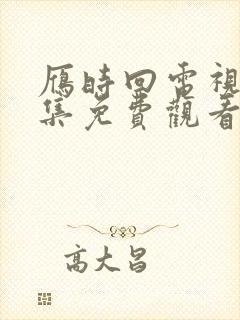 雁時回電視
集免費觀看
高大昌